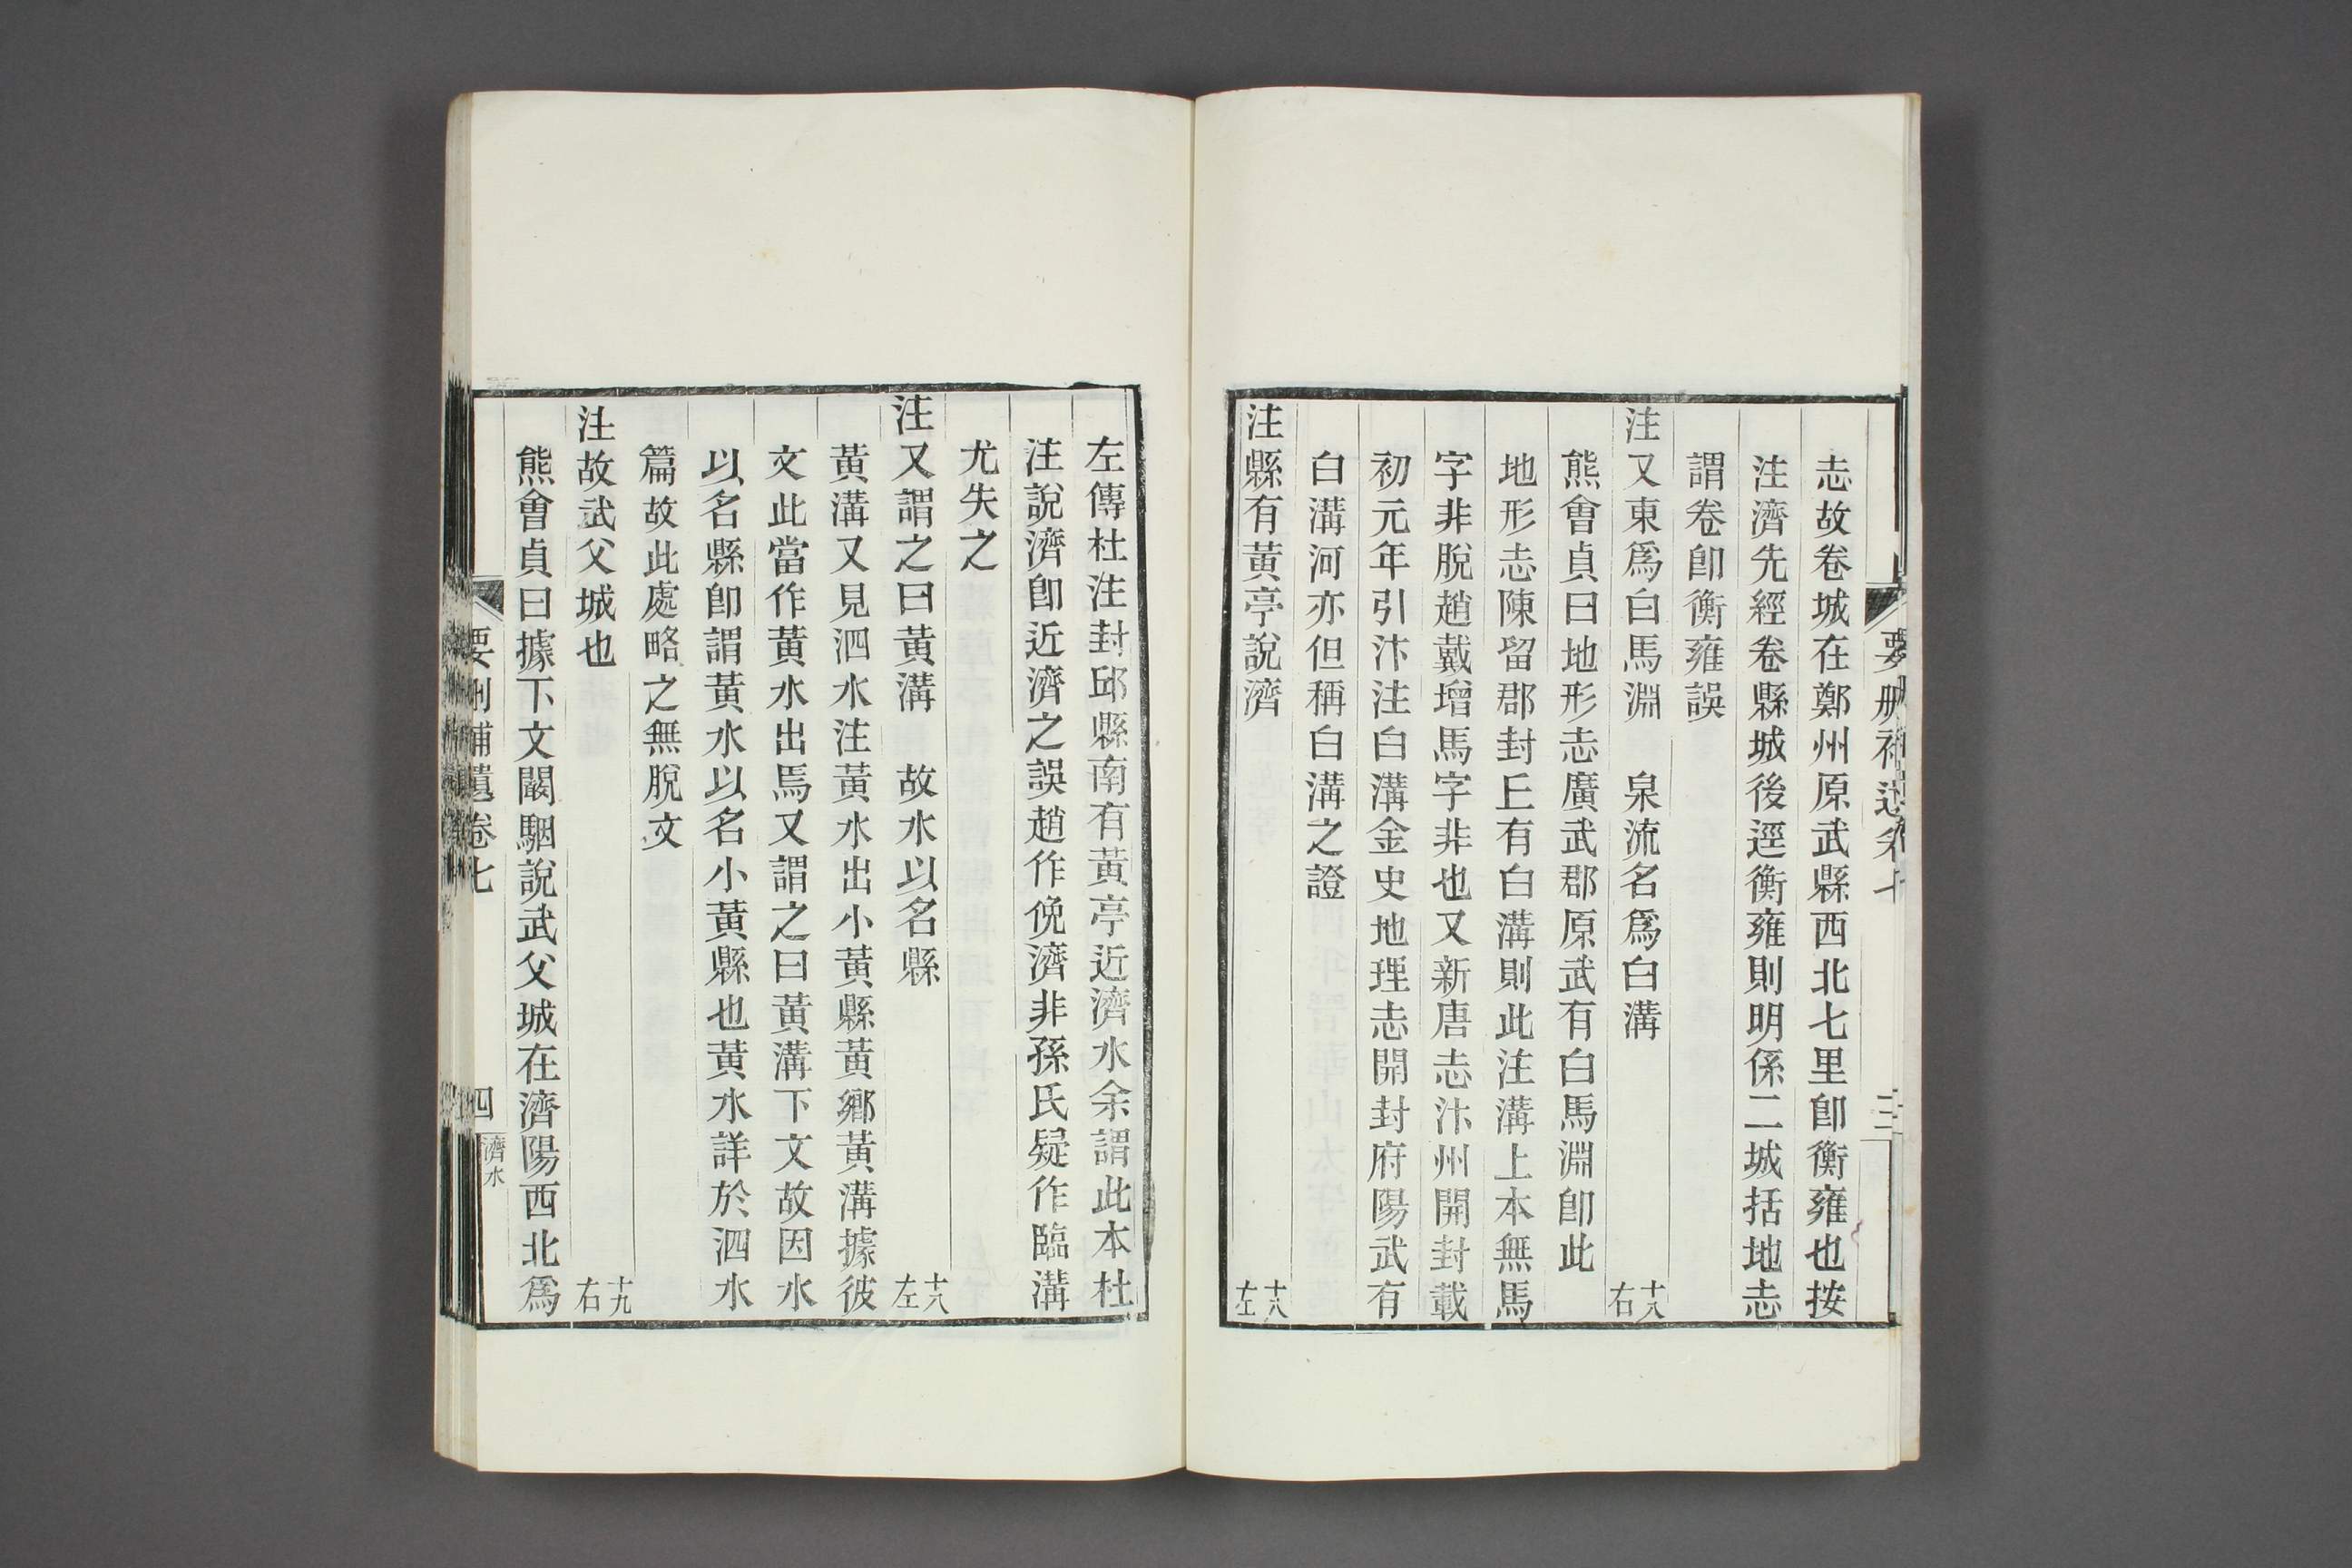 志故卷城在鄭州原武縣西北七里卽衡雍也按
注濟先經卷縣城後逕衡雍則明係二城括地志
謂卷卽衡雍誤
注又東爲白馬淵　泉流名爲白溝　十八右
熊會貞曰地形志廣武郡原武有白馬淵卽此
地形志陳留郡封丘有白溝則此注溝上本無馬
字非脫趙戴增馬字非也又新唐志汴州開封載
初元年引汴注白溝金史地理志開封府陽武有
白溝河亦但稱白溝之證
注縣有黃亭說濟　十八左
左傳杜注封邱縣南有黃亭近濟水余謂此本杜
注說濟卽近濟之誤趙作俛濟非孫氏疑作臨溝
尤失之
注又謂之曰黃溝　故水以名縣　十八左
黃溝又見泗水注黃水出小黃縣黃鄉黃溝據彼
文此當作黃水出焉又謂之曰黃溝下文故因水
以名縣卽謂黃水以名小黃縣也黃水詳於泗水
篇故此處略之無脫文
注故武父城也　十九右
熊會貞曰據下文闞駰說武父城在濟陽西北爲
要刪補遺卷七　四　濟水